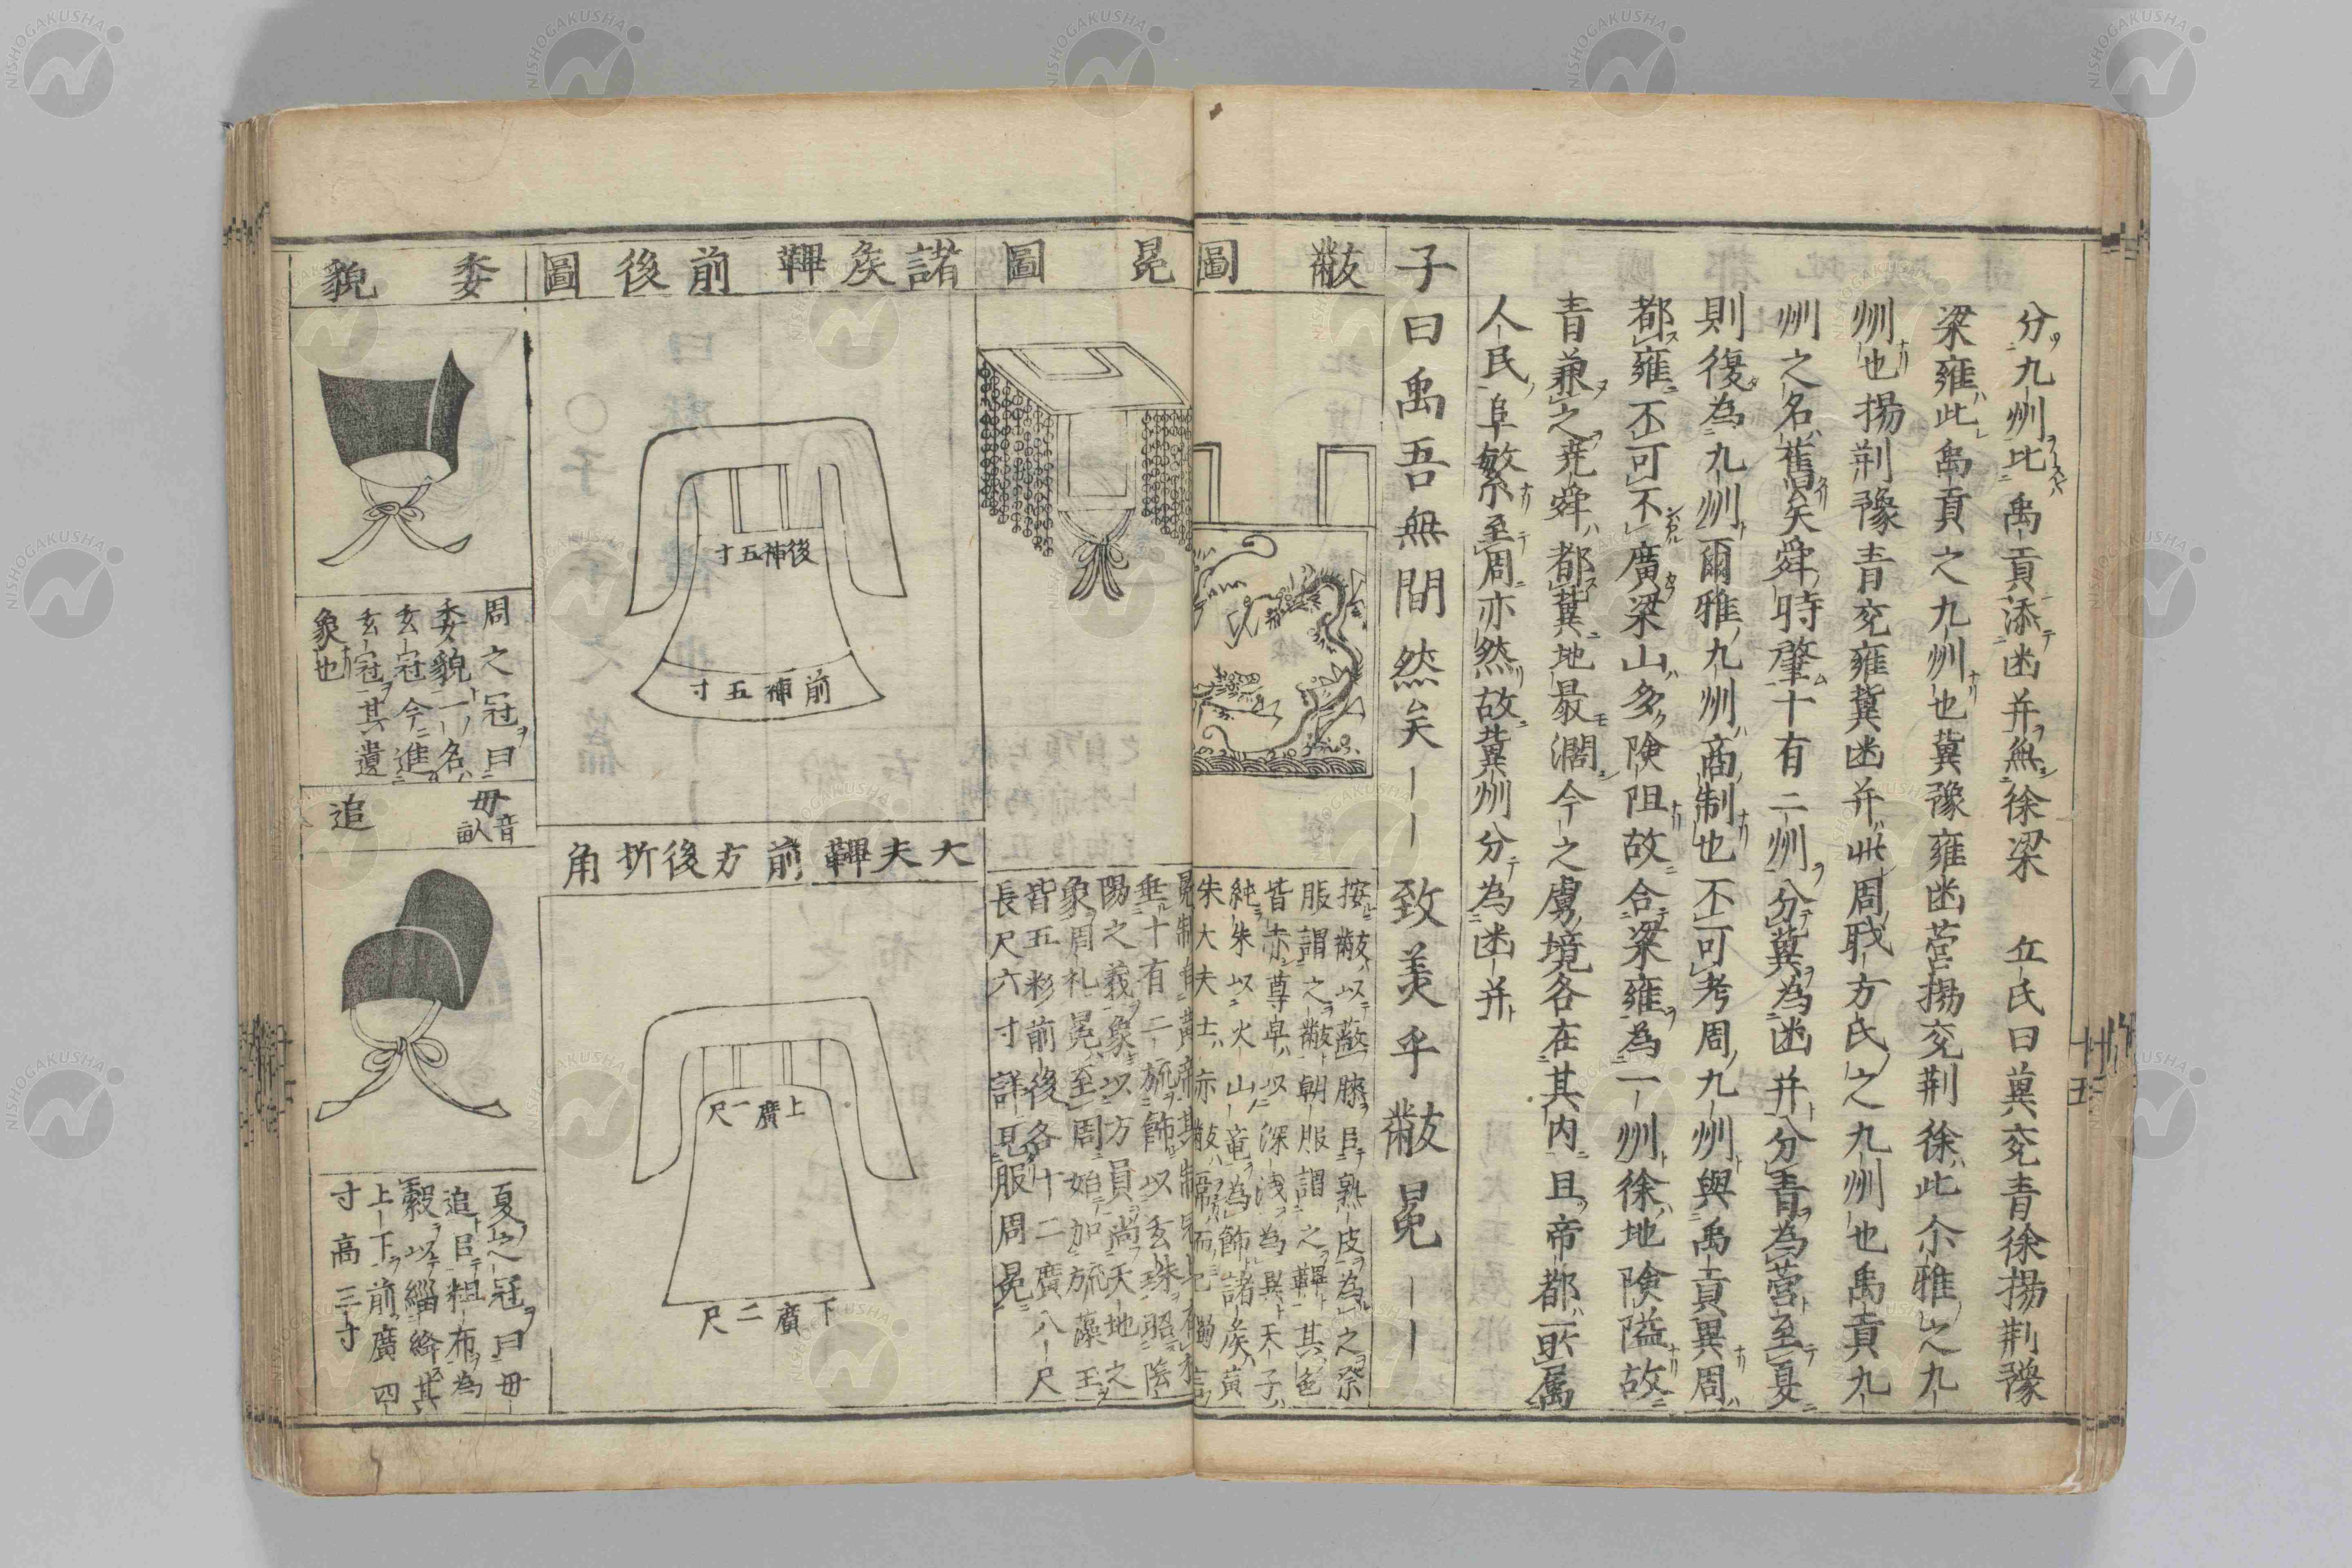 分九州比禹貢添幽并無徐梁 丘氏曰冀兖青徐揚荆豫
梁雍此禹貢之九州也冀豫雍幽営揚兖荆徐此尒雅之九
州也揚荆豫青兖雍冀幽并此周職方氏之九州也禹貢九
州之名舊矣舜時肇十有二州分冀為幽并分青為営至夏
則復為九州爾雅九州商制也不可考周九州與禹貢異周
都雍不可不廣梁山多険阻故合梁雍為一州徐地険隘故
青兼之尭舜都冀地最濶今之虜境各在其内且帝都所属
人民阜繁至周亦然故冀州分為幽并
子曰禹吾無間然矣｜｜致美乎黻冕｜｜
黻圖
按黻以蔽膝㠯熟皮為之祭
服謂之黻朝服謂之鞸其色
皆赤尊卑以深浅為異天子
純朱以火山竜為飾諸侯黄
朱大夫士亦黻
冕圖
垂十有二旒飾以玄珠昭陰
陽之義象以方員尚天地之
象周礼冕至周始加旒藻玉
皆五彩前後各十二廣八尺
長尺六寸詳見服周冕
諸侯鞸前後圖
後裨五寸
前裨五寸
大夫鞸前方後折角
上廣一尺
下廣二尺
委貌
周之冠曰
委貌一名
玄冠今進
玄冠其遺
象也
毋音畝追
夏之冠曰毋
追㠯粗布為
縠以緇絳其
上下前廣四
寸高三寸
NISHOGAKUSHA